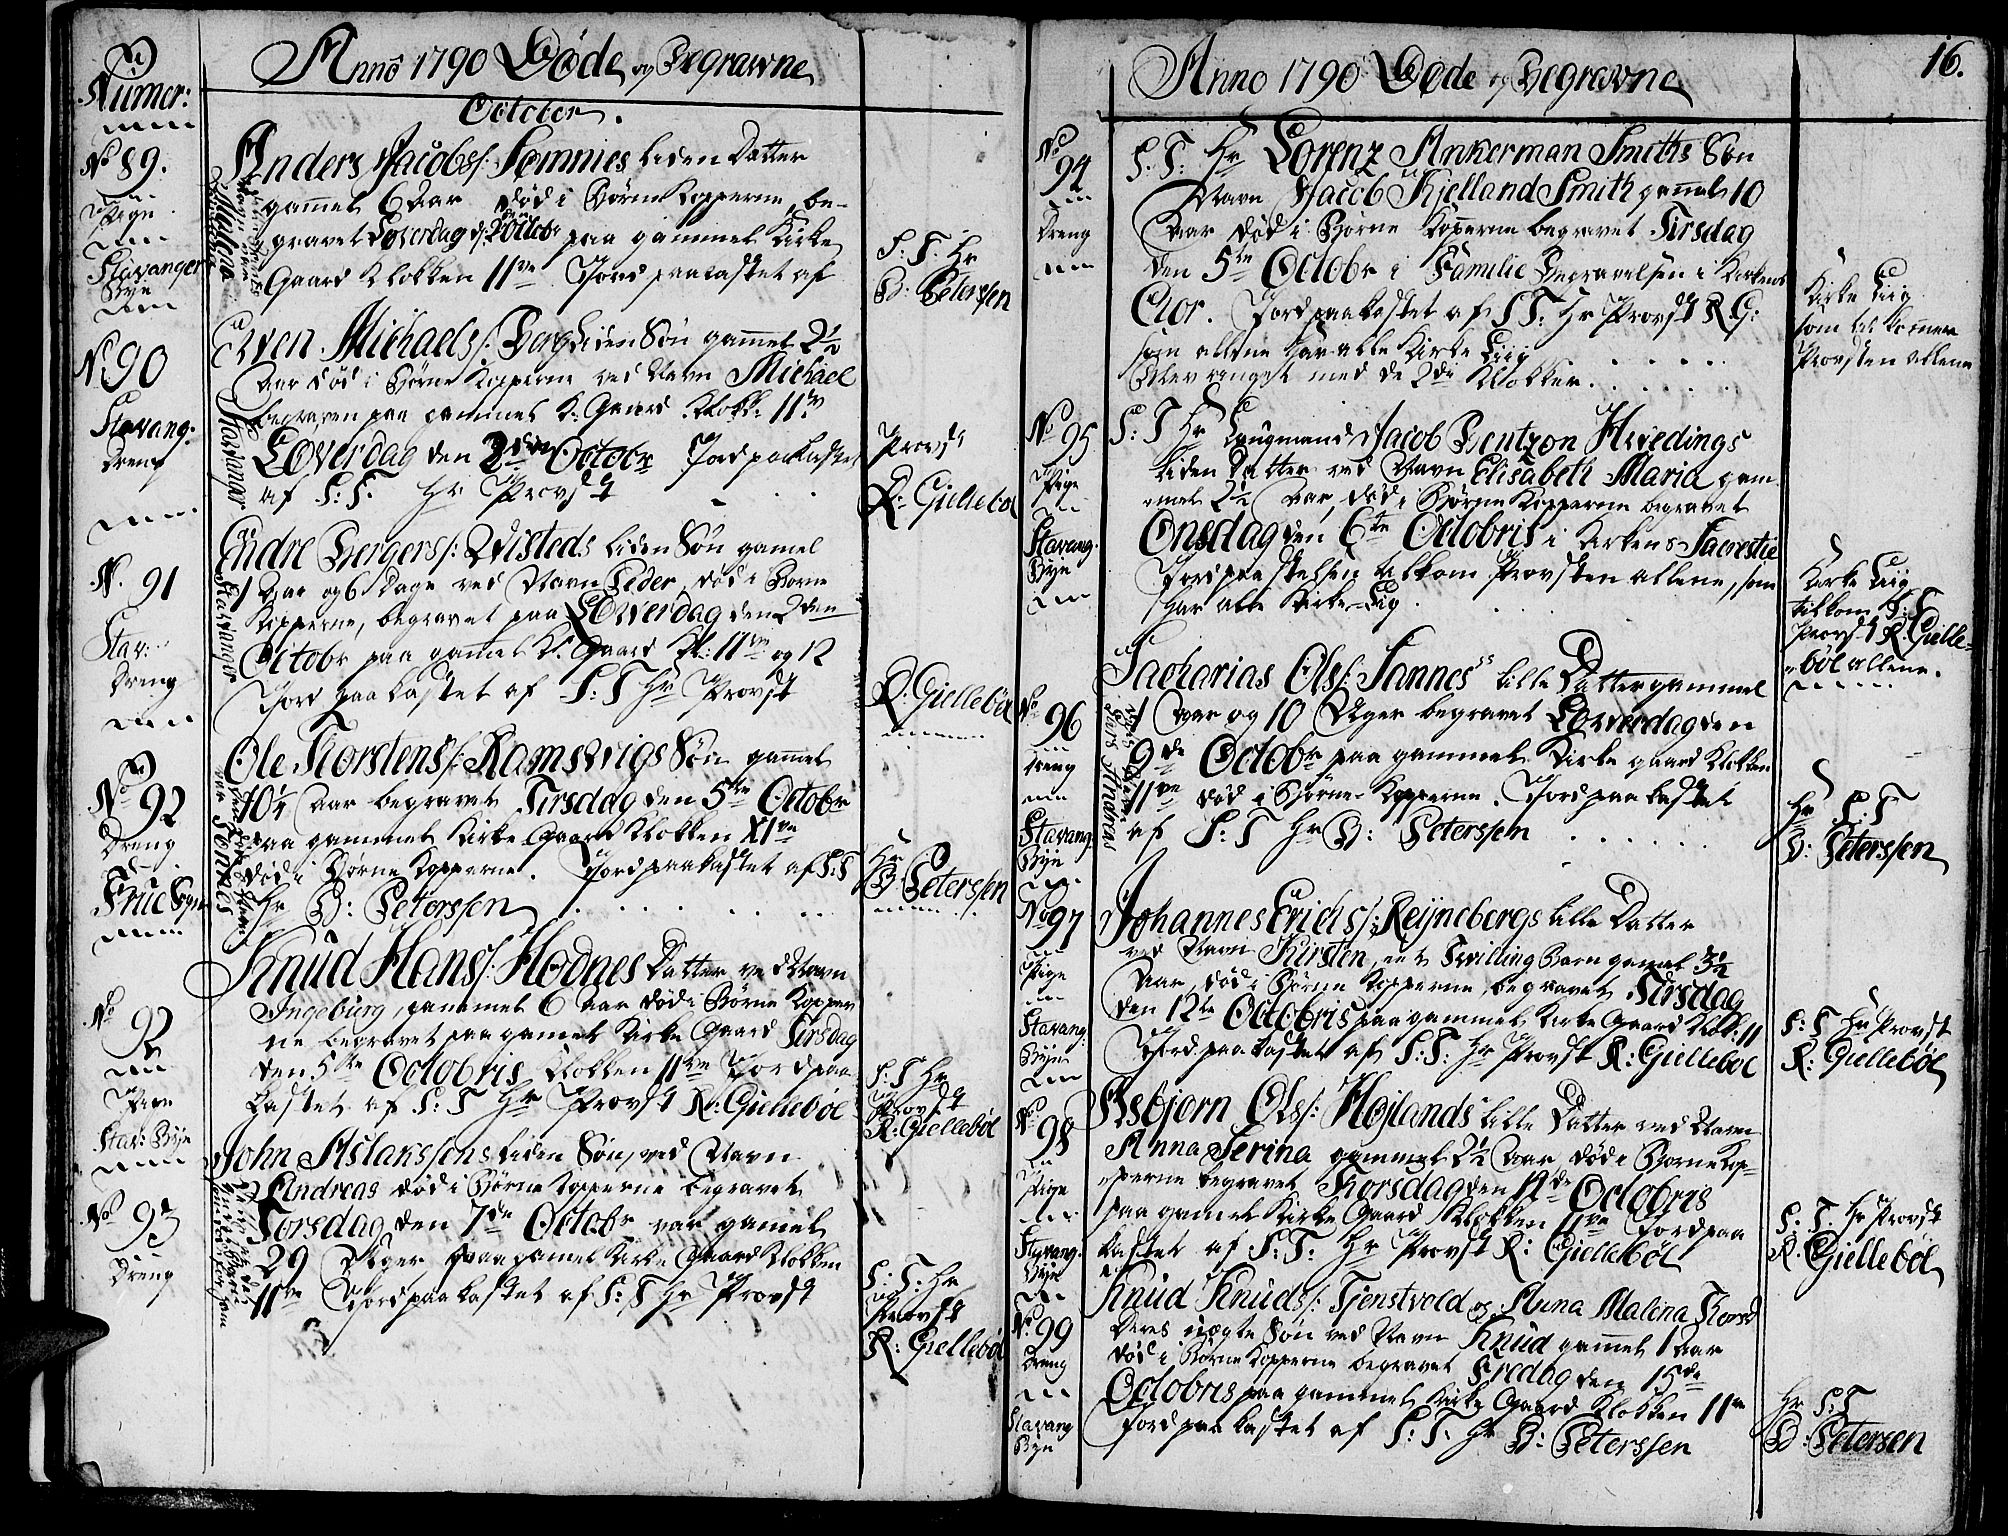 Numer:
Anno 1790 Døde og Begravne
October.
No 89.
Pige
Stavanger
Bye
Anders Jacobs: Temnies liden Datter
gammel 6 Aar død i Børne Kopperne, be-
gravet Løverdag d: 2den Octobr paa gammel Kirke
Gaard Klokken 11ve Jord paakastet af
Malena
S. T. Hr
B: Peterssen
No 90
Stavang:
Dreng
Even Michaels: Berg liden Søn gammel 2½
Aar død i Børne Kopperne ved Navn Michael
begraven paa gammel K: Gaard Klok: 11ve
Løverdag den 2den Octobr Jord paakastet
af S: T. Hr Provst
Stavanger
Provst
R: Giellebøl
N. 91
Stav:
Dreng
Endre Bergers: Qvisteds liden Søn gamel
1 Aar og 6 Dage ved Navn Peder, død i Børne
Kopperne, begravet paa Løverdag den 2den
Octobr paa gammel K: Gaard Kl: 11ve og 12
Jord paa kastet af S: T Hr Provst
Stavanger
R: Giellebøl
No 92
Dreng
Frue Bye
Ole Thorstens: Ramsvigs Søn gammel
10¼ Aar begravet Tirsdag den 5te Octobr
paa gammel Kirke Gaard Klokken XIve
død i Børne Kopperne. Jord paakastet af S: T
Hr B: Peterssen
Hr
B: Peterssen
No 92
Pige
Stav: Bye
Knud Hans: Hodnes Datter ved Navn
Ingeburg, gammel 6 Aar død i Børne Kopper
ne begravet paa gamel Kirke Gaard Tirsdag
den 5te Octobris Klokken 11ve Jord paa
kastet af S: T Hr Provst R: Giellebøl
S. T Hr
Provst
R: Giellebøl
No 93
Dreng
John Aslakssens liden Søn, ved Navn
Andreas død i Børne Kopperne begravet
Torsdag den 7de Octobr var gamel
29 Uger paa gamel Kirke Gaard Klokken
11ve Jord paa kastet af S: T Hr Provst
S: T: Hr
Provst
R: Giellebøl
Anno 1790 Døde og Begravne
16.
No 94
Dreng
S. T: Hr Lorenz Ankerman Smiths Søn
Navn Jacob Kielland Smith gamel 10
Aar død i Børne Kopperne begravet Tirsdag
den 5te Octobr i Familie Begravelsen i Kirkens
Chor. Jord paakastet af S T: Hr Provst R G:
som allene har alle Kirke Liig
Blev ringet med de 2de Klokker.
Kirke Liig
som tilkommer
Provsten allene
No 95
Pige
Stavang:
Bye
S: T Hr Laugmand Jacob Bentzon Hvedings
liden Datter ved Navn Elisabeth Maria gam
mel 2½ Aar, død i Børne Kopperne begravet
Onsdag den 6te Octobris i Kirkens Sacrestie
Jord paakastelsen tilkom Provsten allene, som
har alle Kirke-Liig.
Kirke Liig
tilkom S: T
Provst R. Gielle-
bøl allene.
No 96
Dreng
Stavang:
Bye
Zacharias Ols: Tannes lille Datter gammel
1 Aar og 10 Uger begravet Løverdag den
9de Octobr paa gammel Kirke gaard Klokken
11ve død i Børne-Kopperne. Jord paa kastet
af S: T Hr B: Peterssen
Hr S: T
B: Peterssen
No 97
Pige
Stavang:
Bye
Johannes Erichs: Reijnebergs lille Datter
ved Navn Kirsten, eet Tvilling Barn gamel 3½
Aar, død i Børne Kopperne, begravet Tirsdag
den 12te Octobris paa gammel Kirke Gaard Klok: 11
Jord paa kastet af S: T: Hr Provst R: Giellebøl
S: T Hr Provst
R: Giellebøl
No 98
Pige
Stavang:
Bye
Asbjørn Ols: Højlands lille Datter ved Navn
Anna Serina gammel 2½ Aar død i Børne Kop-
perne begravet Torsdag den 14de Octobris
paa gamel Kirke Gaard Klokken 11ve Jord paa
kastet af S: T: Hr Provst R: Giellebøl
S: T. Hr Provst
R: Giellebøl
No 99
Dreng
Stavang
Bye
Knud Knuds: Tjenstvold og Anna Malena Thorsd
deres uægte Søn ved Navn Knud gamel 1 Aar
død i Børne Kopperne begravet Fredag den 15de
Octobris paa gammel Kirke Gaard Klokken 11ve
Jord paa kastet af S: T. Hr B: Peterssen
Hr S: T
B: Petersen